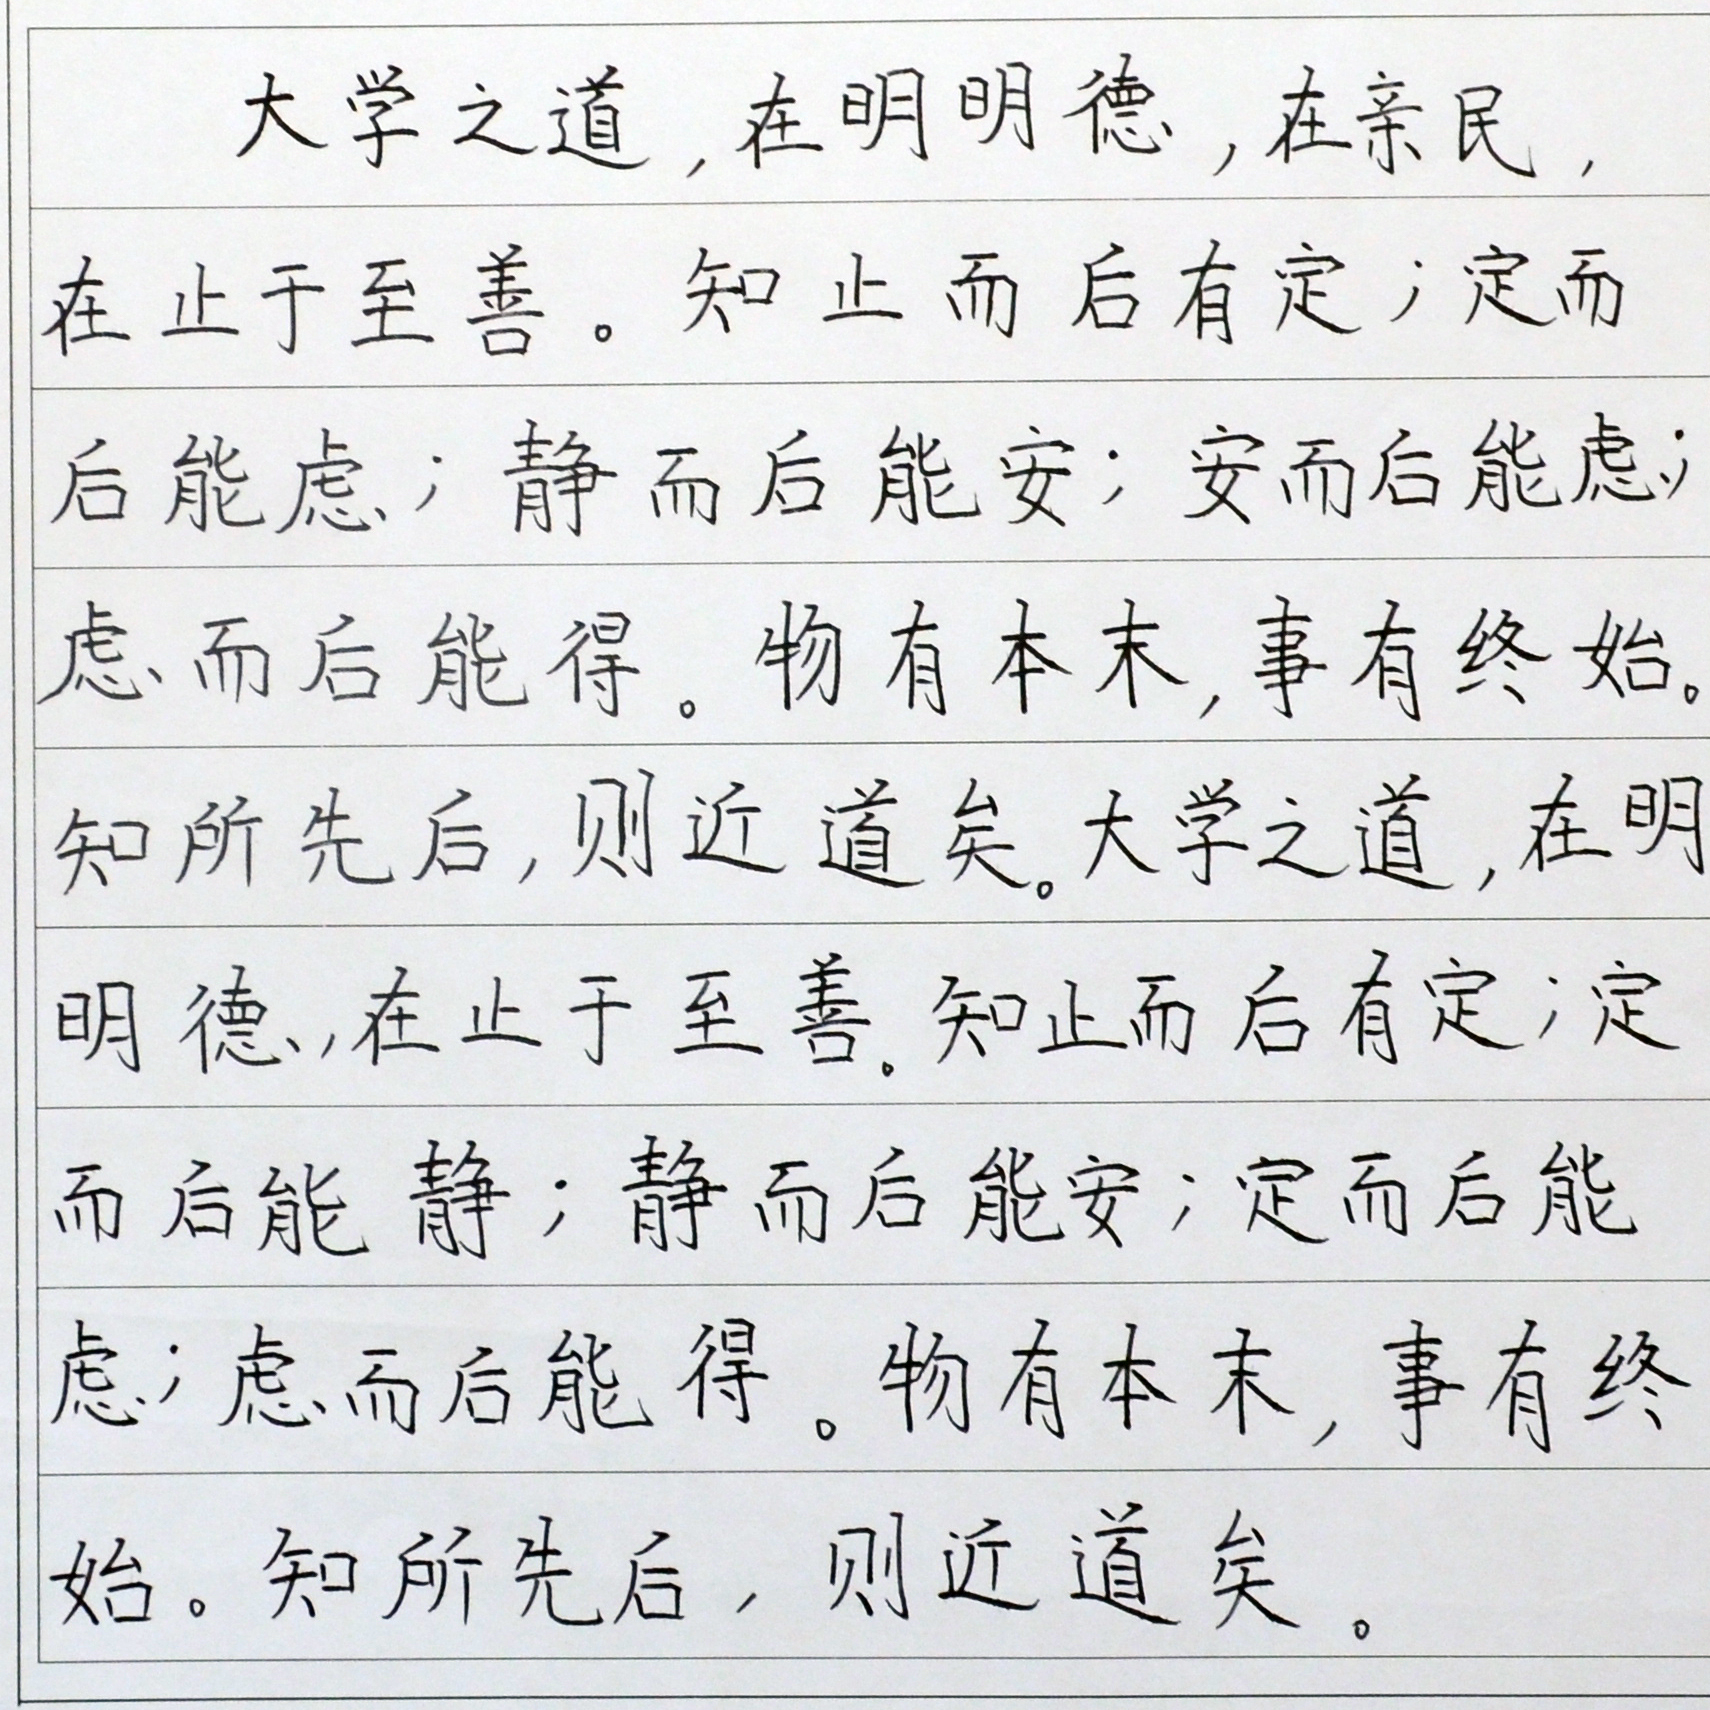 大学之道,在明明德,在亲民,
在止于至善。知止而后有定;定而
后能虑;静而后能安;安而后能虑;
虑而后能得。物有本末,事有终始。
知所先后,则近道矣。大学之道,在明
明德,在止于至善。知止而后有定;定
而后能静;静而后能安;定而后能
虑;虑而后能得。物有本末,事有终
始。知所先后,则近道矣。